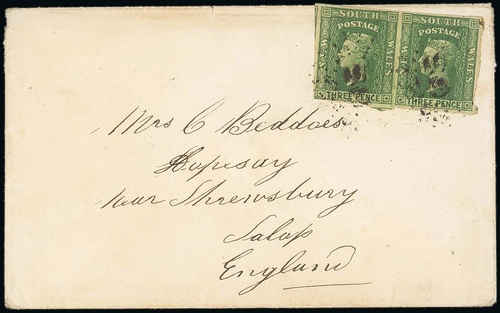 SOUTH SOUTH
POSTAGE POSTAGE
NEW WALES NEW WALES
THREE PENCE THREE PENCE
Mrs C Beddoes
Hopesay
near Shrewsbury
Salop
England